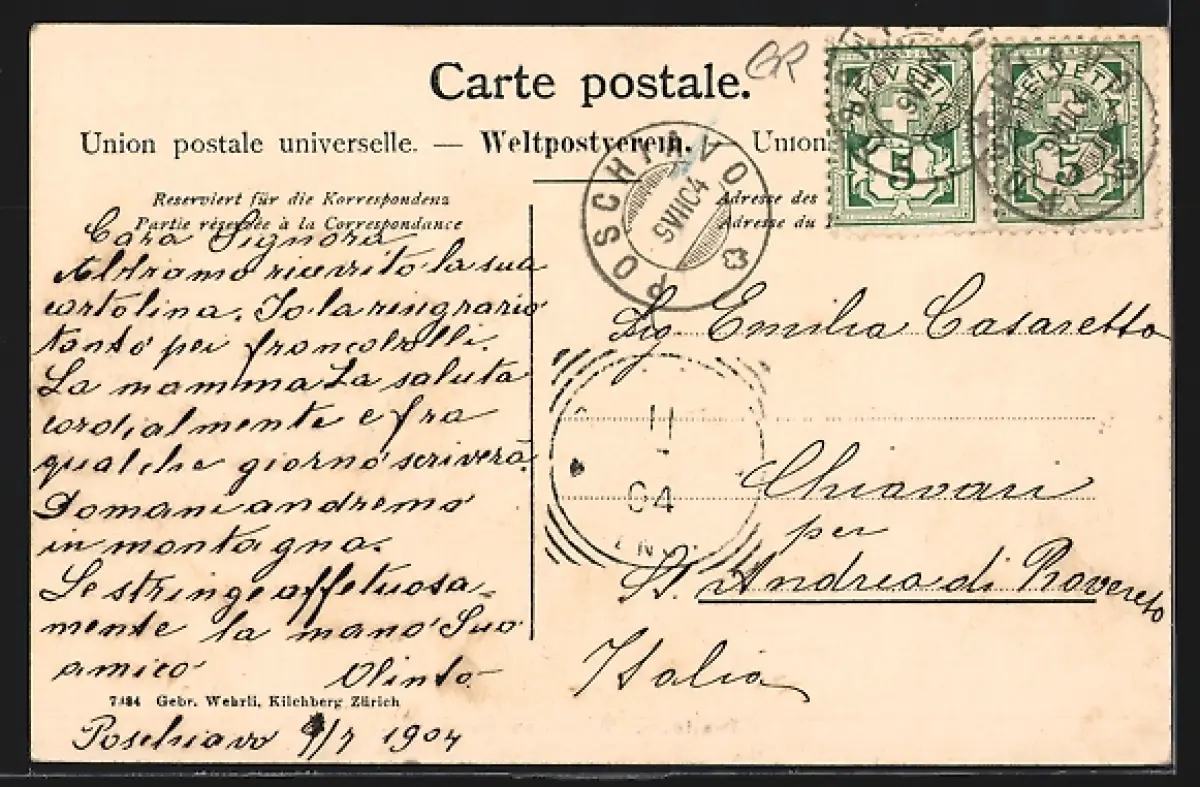 Carte postale.
GR
Union postale universelle. — Weltpostverein. — Union
Reserviert für die Korrespondenz
Partie réservée à la Correspondance
Adresse des
Adresse du
HELVETIA
5
HELVETIA
5
POSCHIAVO
9 VII 04
Cara Signora
Abbiamo ricevuto la sua
cartolina. Io la ringrazio
tanto pei francobolli.
La mamma La saluta
cordialmente e fra
qualche giorno scriverà.
Domani andremo
in montagna.
Le stringe affetuosa-
mente la mano Suo
amico Olinto
7484 Gebr. Wehrli, Kilchberg Zürich
Poschiavo 9/7 1904
Sig. Emilia Casaretto
11
04
Chiavari
per
St. Andrea di Rovereto
Italia